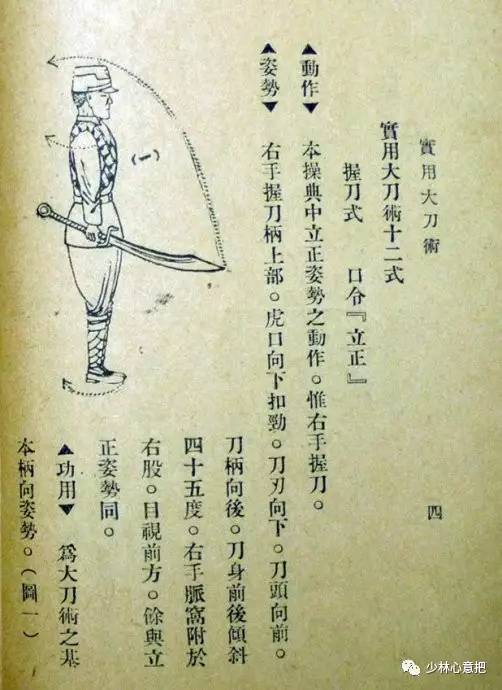 實用大刀術
四
實用大刀術十二式
握刀式　口令『立正』
▲動作▼　本操典中立正姿勢之動作。惟右手握刀。
▲姿勢▼　右手握刀柄上部。虎口向下扣勁。刀刃向下。刀頭向前。
刀柄向後。刀身前後傾斜
四十五度。右手脈窩附於
右股。目視前方。餘與立
正姿勢同。
▲功用▼　為大刀術之基
本柄向姿勢。(圖一)
(一)
少林心意把